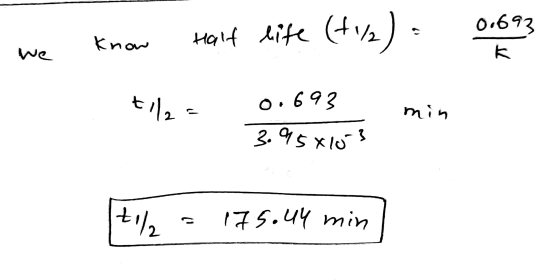 We know Half life (t1/2) = 0.693 / K
t1/2 = 0.693 / 3.95×10⁻³ min
t1/2 = 175.44 min